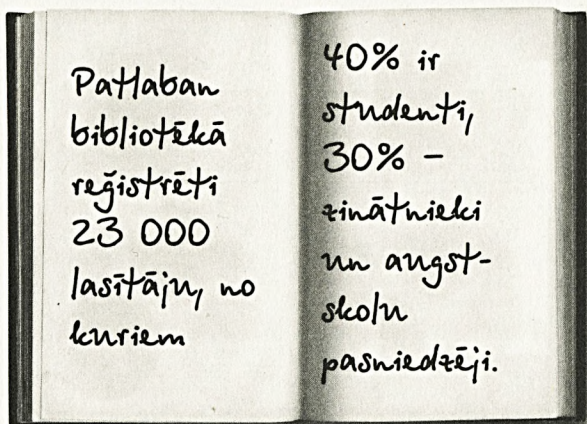 Patlaban
bibliotēkā
reģistrēti
23 000
lasītāju, no
kuriem
40% ir
studenti,
30% –
zinātnieki
un augst-
skolu
pasniedzēji.